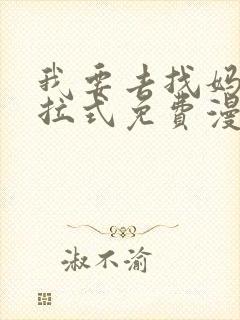 我要去找妈
拉式免費漫
淑不渝